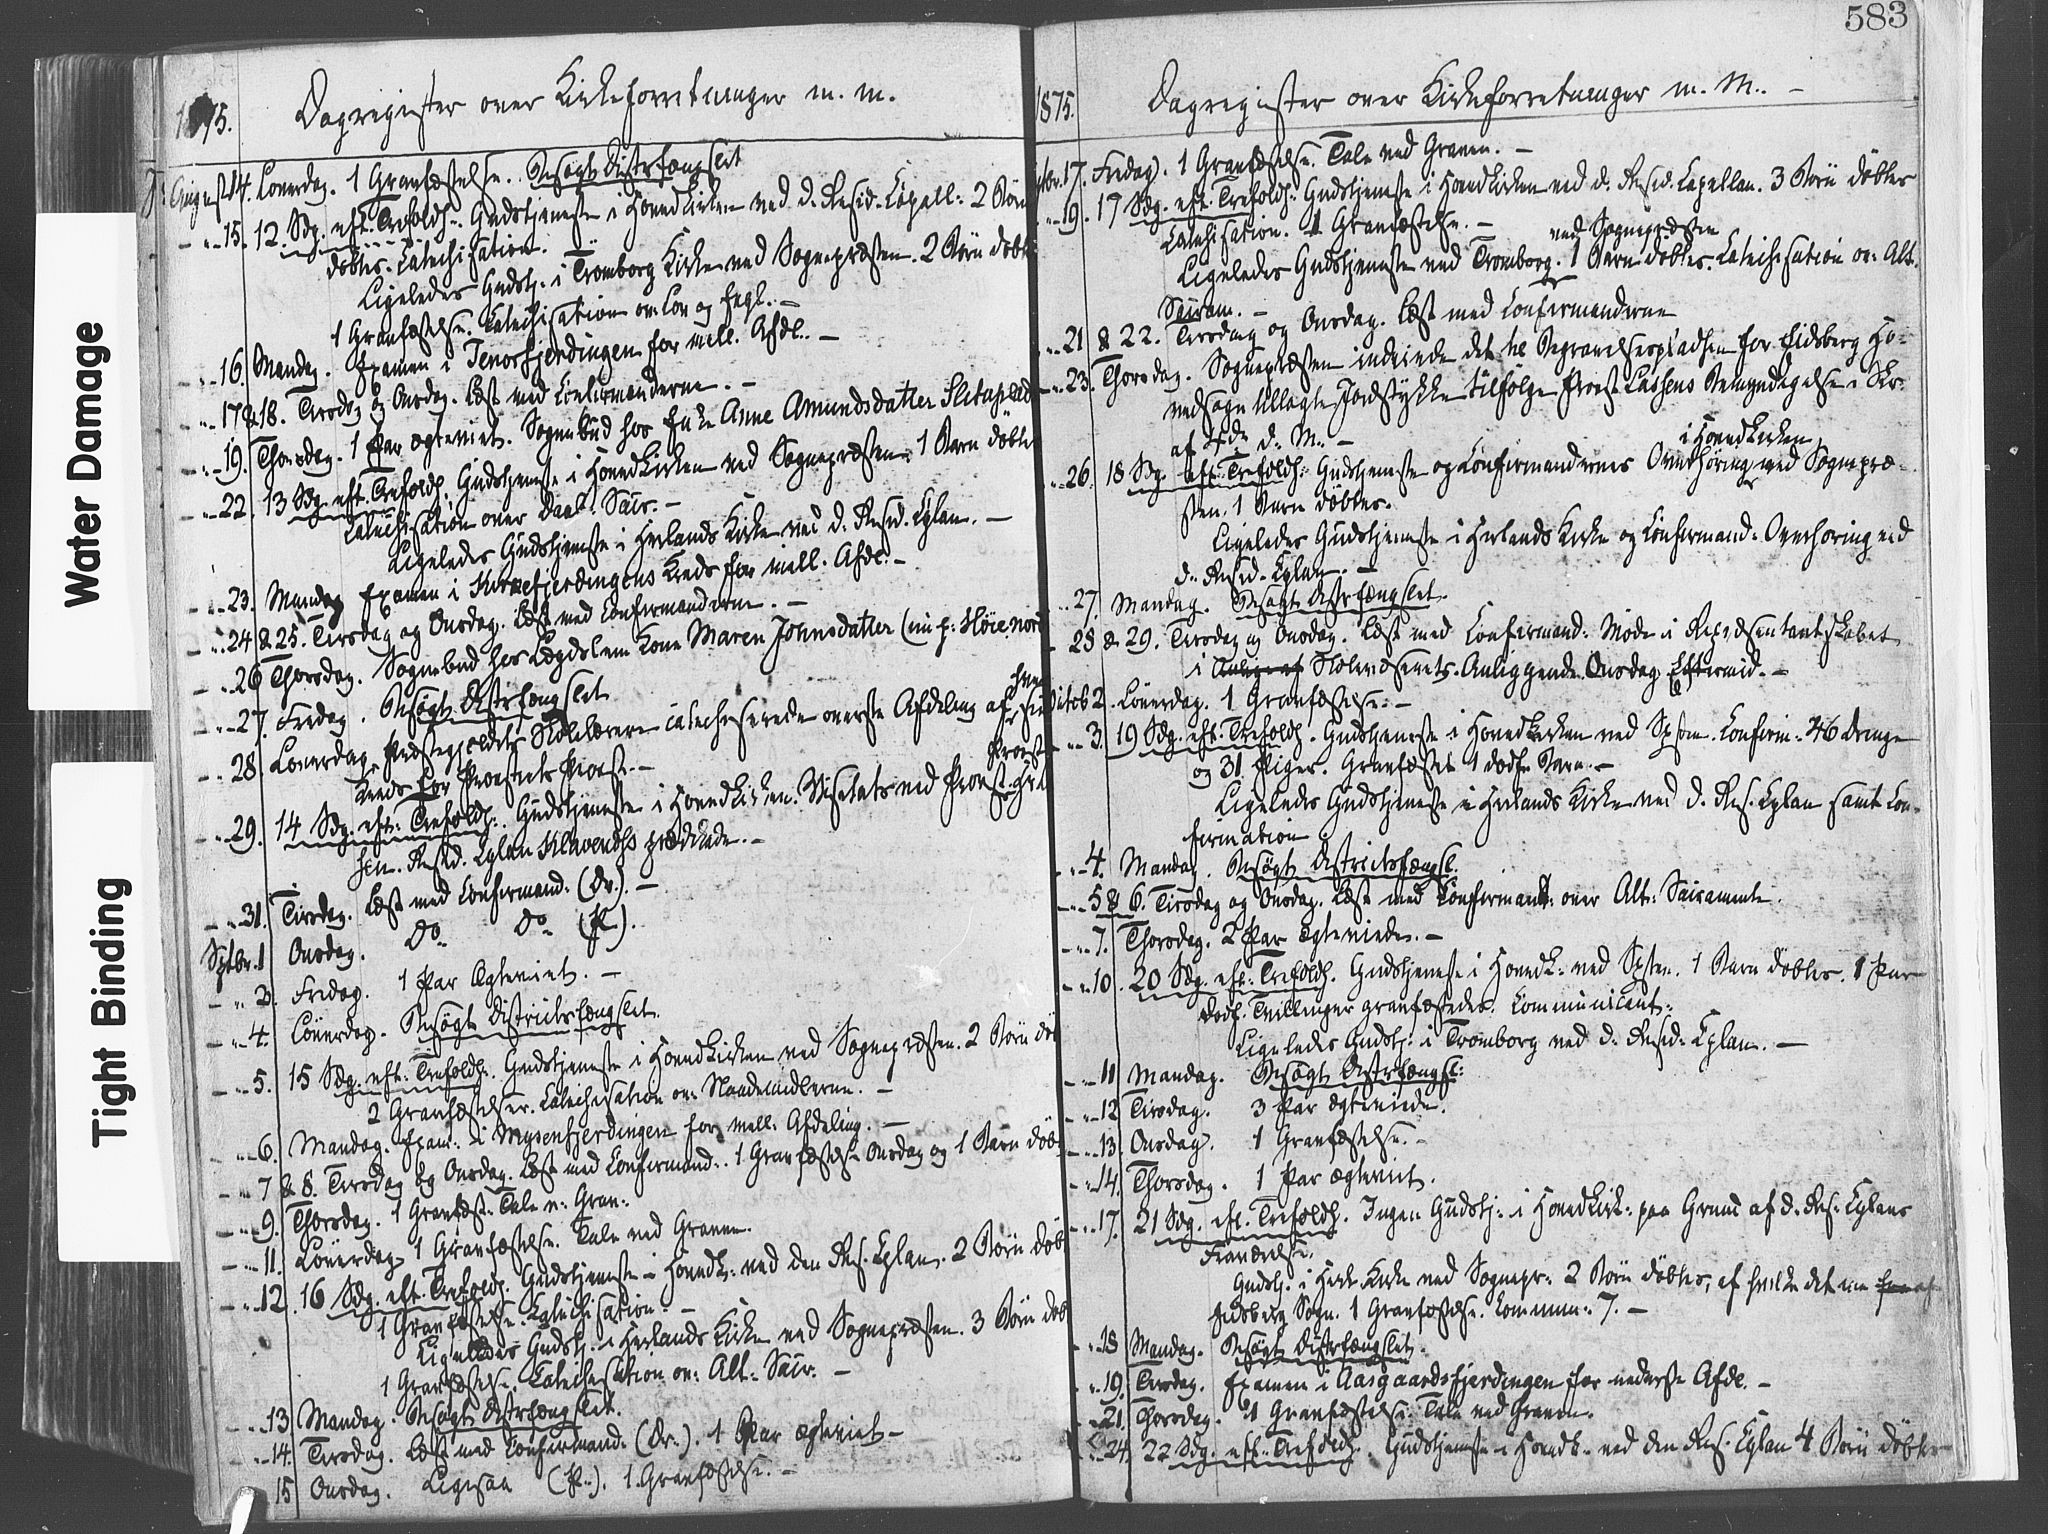 Water Damage
Tight Binding
1875.
Dagregister over Kirkeforretninger m. m.
August 14. Löverdag. 1 Gravfæstelse. Besögt Distrfængslet
15. 12. Sdg. eft. Trefoldh: Gudstjeneste i Hovedkirken ved d. Resid. Capell: 2 Börn
döbtes. Catechisation.
Ligeledes Gudstj. i Tromborg Kirke ved Sognepræsten. 2 Börn döbt
1 Gravfæstelse. Catechisation ov. Lov og Evgl. –
16. Mandag. Examen i Tenorfjerdingen for mell. Afdl. –
17 & 18. Tirsdag og Onsdag. Læst med Confirmanderne. –
19. Thorsdag. 1 Par ægteviet. Sognebud hos Enke Anne Amundsdatter Slituplad
22. 13 Sdg. eft. Trefoldh. Gudstjeneste i Hovedkirken ved Sognepræsten. 1 Barn döbtes
Catechisation over Daab. Sacr. –
Ligeledes Gudstjeneste i Herlands Kirke ved d. Resid. Cplan. –
23. Mandag Examen i Kirkefjerdingens Kreds for mell. Afdl. –
24 & 25. Tirsdag og Onsdag. Læst med Confirmanderne. –
26 Thorsdag. Sognebud hos Lægdslem Kone Maren Johnsdatter
27. Fredag. Besögt Distrfængslet
28. Löverdag. Præstegjældets Skolelærere catechiserede överste Afdeling af
Kreds for Provstiets Provst. –
29. 14 Sdg. eft. Trefoldh: Gudstjeneste i Hovedkirken. Visitats ved Provst
Resid. Cplan Klavenæss prædikede. –
31. Tirsdag. Læst med Confirmand: (Dr.). –
Sptbr. 1 Onsdag. Do Do (P.).
3. Fredag. 1 Par Ægteviet. –
4. Löverdag. Besögt Districtsfængslet.
5. 15 Sdg. eft. Trefoldh. Gudstjeneste i Hovedkirken ved Sognepræsten. 2 Börn döb
2 Gravfæstelser. Catechisation ov. Naademidlerne. –
6. Mandag. Exam: i Mysenfjerdingen for mell. Afdeling. –
7 & 8. Tirsdag og Onsdag. Læst med Confirmand: 1 Gravfæstelse Onsdag og 1 Barn döb
9. Thorsdag. 1 Gravfæst. Tale v. Grav:
11. Löverdag 1 Gravfæstelse. Tale ved Graven.
12. 16 Sdg. eft. Trefoldh. Gudstjeneste i Hovedk: ved den Res. Cplan. 2 Börn döb
1 Gravfæstelse. Catechisation. –
Ligeledes Gudstj. i Herlands Kirke ved Sognepræsten. 3 Börn döb
1 Gravfæstelse. Catechisation ov: Alt: Sacr. –
13 Mandag. Besögt Distrfængslet.
14. Tirsdag. Læst med Confirmand. (Dr.). 1 Par ægteviet –
15 Onsdag. Ligesaa (P.). 1 Gravfæstelse. –
583
1875.
Dagregister over Kirkeforretninger m. M. –
ptbr. 17. Fredag. 1 Gravfæstelse. Tale ved Graven. –
19. 17 Sdg. eft. Trefoldh: Gudstjeneste i Hovedkirken ved d. Resid. Capellan. 3 Börn döbtes
Catechisation. 1 Gravfæstelse. –
ved Sognepræsten
Ligeledes Gudstjeneste ved Tromborg. 1 Barn döbtes. Catechisation ov: Alt.
Sacram. –
21 & 22. Tirsdag og Onsdag. Læst med Confirmanderne
23. Thorsdag. Sognepræsten indviede det til Begravelsespladsen for Eidsberg Ho-
vedsogn tillagte Jordstykke tilfölge Provst Lassens Bemyndigelse i Skr.
af 4de d. M. –
i Hovedkirken
26. 18 Sdg. eft. Trefoldh: Gudstjeneste og Confirmandernes Overhöring ved Sognepræ-
sten. 1 Barn döbtes.
Ligeledes Gudstjeneste i Herlands Kirke og Confirmand: Overhöring ved
d. Resid. Cplan. –
27. Mandag. Besögt Distrfængslet.
28 & 29. Tirsdag og Onsdag. Læst med Confirmand: Möde i Repræsentantskabet
i Skolevæsenets Anliggende Onsdag Eftermid. –
Octob 2. Löverdag. 1 Gravfæstelse. –
3. 19 Sdg. eft. Trefoldh. Gudstjeneste i Hovedkirken ved Spræst. Confirm: 46 Drenge
og 31 Piger. Gravfæstet 1 dödf. Barn. –
Ligeledes Gudstjeneste i Herlands Kirke ved d. Res. Cplan samt Con-
firmation
4. Mandag. Besögt Districtsfængsl.
5 & 6. Tirsdag og Onsdag. Læst med Confirmand: over Alt: Sacramente.
7. Thorsdag. 2 Par Ægteviede. –
10. 20 Sdg. eft. Trefoldh. Gudstjeneste i Hovedk: ved Spsten. 1 Barn döbtes. 1 Par
dödf. Tvillinger gravfæstedes. Communicant:
Ligeledes Gudstj: i Tromborg ved d. Resid. Cplan. –
11 Mandag. Besögt Distrfængsl:
12 Tirsdag. 3 Par ægteviede.
13. Onsdag. 1 Gravfæstelse. –
14. Thorsdag. 1 Par ægteviet.
17. 21 Sdg. eft. Trefoldh. Ingen Gudstj: i Hovedkirk: paa Grund af d. Res. Cplans
Fraværelse.
Gudstj. i Herl. Kirke ved Sognepr: 2 Börn döbtes, af hvilke det ene
Eidsberg Sogn. 1 Gravfæstelse. Commun: 7. –
18 Mandag. Besögt Distrfængslet.
19. Tirsdag. Examen i Aasgaardsfjerdingen for nederste Afdl. –
21. Thorsdag. 1 Gravfæstelse. Tale ved Graven.
24. 22 Sdg. eft. Trefoldh. Gudstjeneste i Hovedk. ved den Res. Cplan 4 Börn döbtes